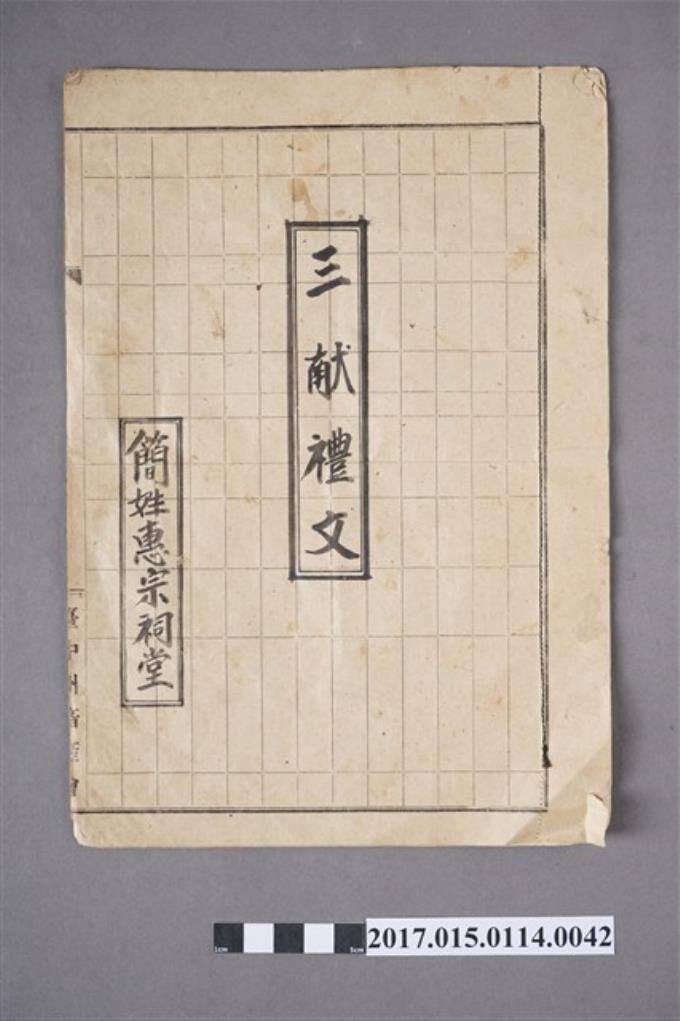 三献禮文
簡姓惠宗祠堂
2017.015.0114.0042
1cm
5cm